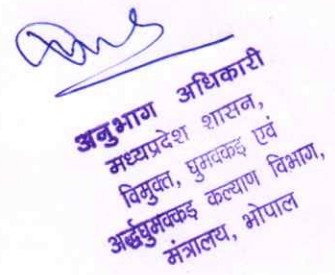 अनुभाग अधिकारी
मध्यप्रदेश शासन,
विमुक्त, घुमक्कड़ एवं
अर्द्धघुमक्कड़ कल्याण विभाग,
मंत्रालय, भोपाल